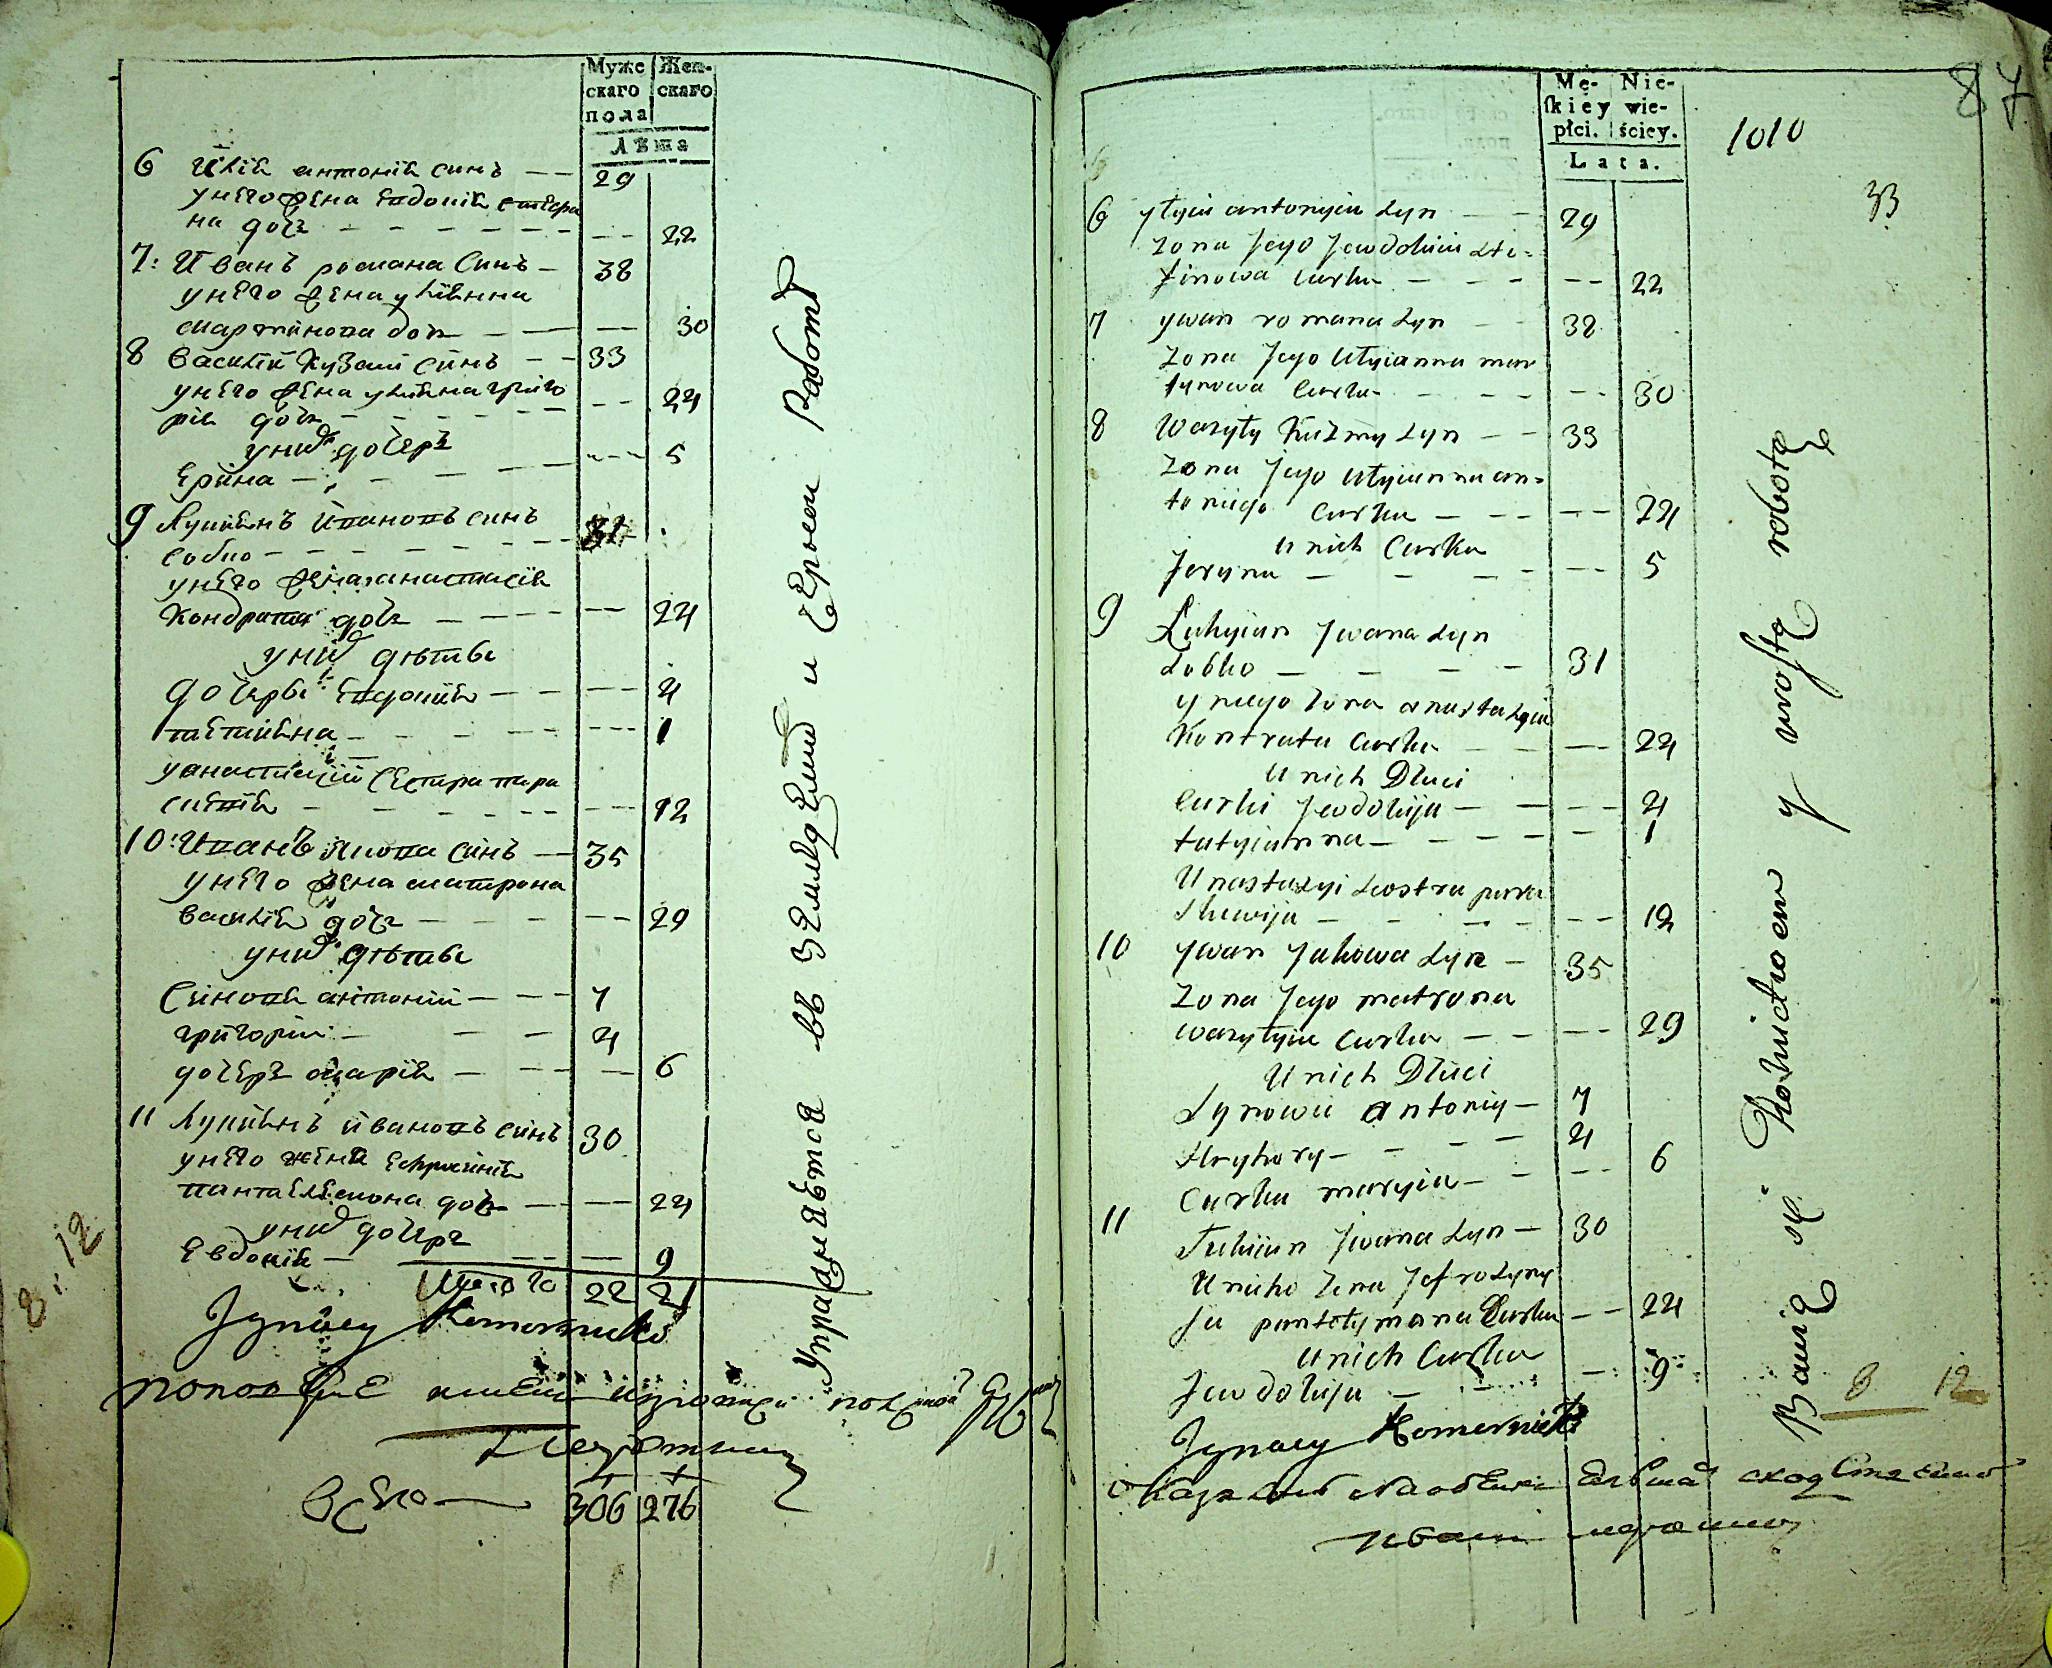 Муже Жен-
скаго скаго
пола
Лѣта
6 Илія антонія синъ — — 29
у него жена Евдокія стефа
на доч — — — 22
7: Иванъ романа Синъ — 38
у него жена улііянна
мартинова доч — — 30
8 Василій Кузми синъ — — 33
у него жена уліяна григо
рія доч — — — 24
у них дочерь
Ерина — — — 5
9 Лукиянъ Ивановъ синъ
собко — — — 31
у него жена анастасія
Кондрата доч — — — 24
у них дѣти
дочерьі Евдокія — — — 4
татияна — — — 1
у анастасіи сестра пара
скевія — — — 12
10: Иванъ якова синъ — 35
у него жена матрона
василія доч — — — 29
у них дѣти
Синови антоній — — — 7
григорій — — — 4
дочерь марія — — — 6
11 Лукиянъ Ивановъ синъ 30
у него жена Ефросинія
пантелемона доч — — 24
у них дочерь
Евдокія — — — 9
Итого 22 21
Jgnacy Komornicki
Всего — 306 276
Упражняется въ Земледелии и Черном Работе
8. 12
87
1010
33
Mę- Nie-
skiey wie-
płci. ściey.
Lata.
6 yłyia antonyia Syn — — 29
Zona Jego Jewdokiia Ste-
finowa Curka — — — 22
7 ywan romana Syn — — 38
Zona Jego Ulyianna mar
tynowa Curka — — — 30
8 Wasyły Kuzmy Syn — — 33
Zona Jego Ulyianna an-
toniego Curka — — — 24
U nich Curka
Jeryna — — — 5
9 Łukyian Jwana Syn
Sobko — — — 31
y niego Zona anastazyia
Kontrata Curka — — — 24
U nich Dzieci
Curki Jewdokija — — — 4
tatyianna — — — 1
U nastazyi Siostra para
skiewija — — — 12
10 ywan Jakowa Syn — 35
Zona Jego matrona
Wasyłyia Curka — — — 29
U nich Dzieci
Synowie antoniy — 7
Hryhory — — — 4
Curka maryia — — — 6
11 Łukiian Jwana Syn — 30
U nieho Zona Jefrozyny
Ja pantełymona Curka — — 24
U nich Curka
Jewdokija — — — 9
Jgnacy Komornicki
Bawią się Rolnictwem y prostą robotą
8 12